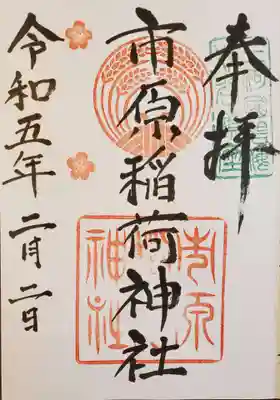 奉拝
市原稲荷神社
令和五年 二月二日
市原
神社